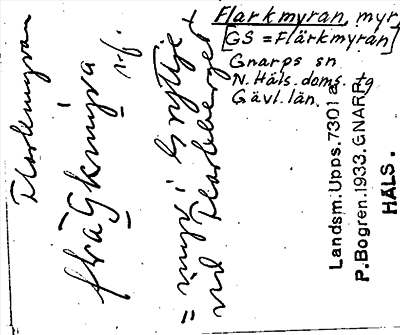 Flarkmyran, myr
[GS = Flärkmyran]
Gnarps sn
N. Häls. doms. tg
Gävl. län.
Flarkmyran
fläGkmỳra
= myr i Gryttje
vid Flarkberget
Landsm. Upps. 7301 a.
P. Bogren. 1933. GNARP
HÄLS.